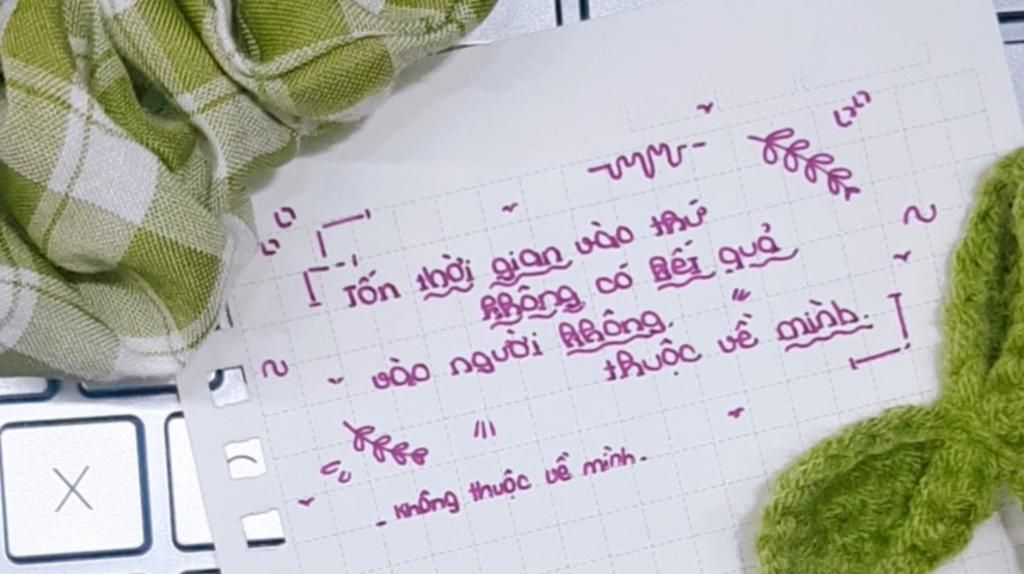 Tốn thời gian vào thứ
không có kết quả
vào người không
thuộc về mình.
- không thuộc về mình.
X